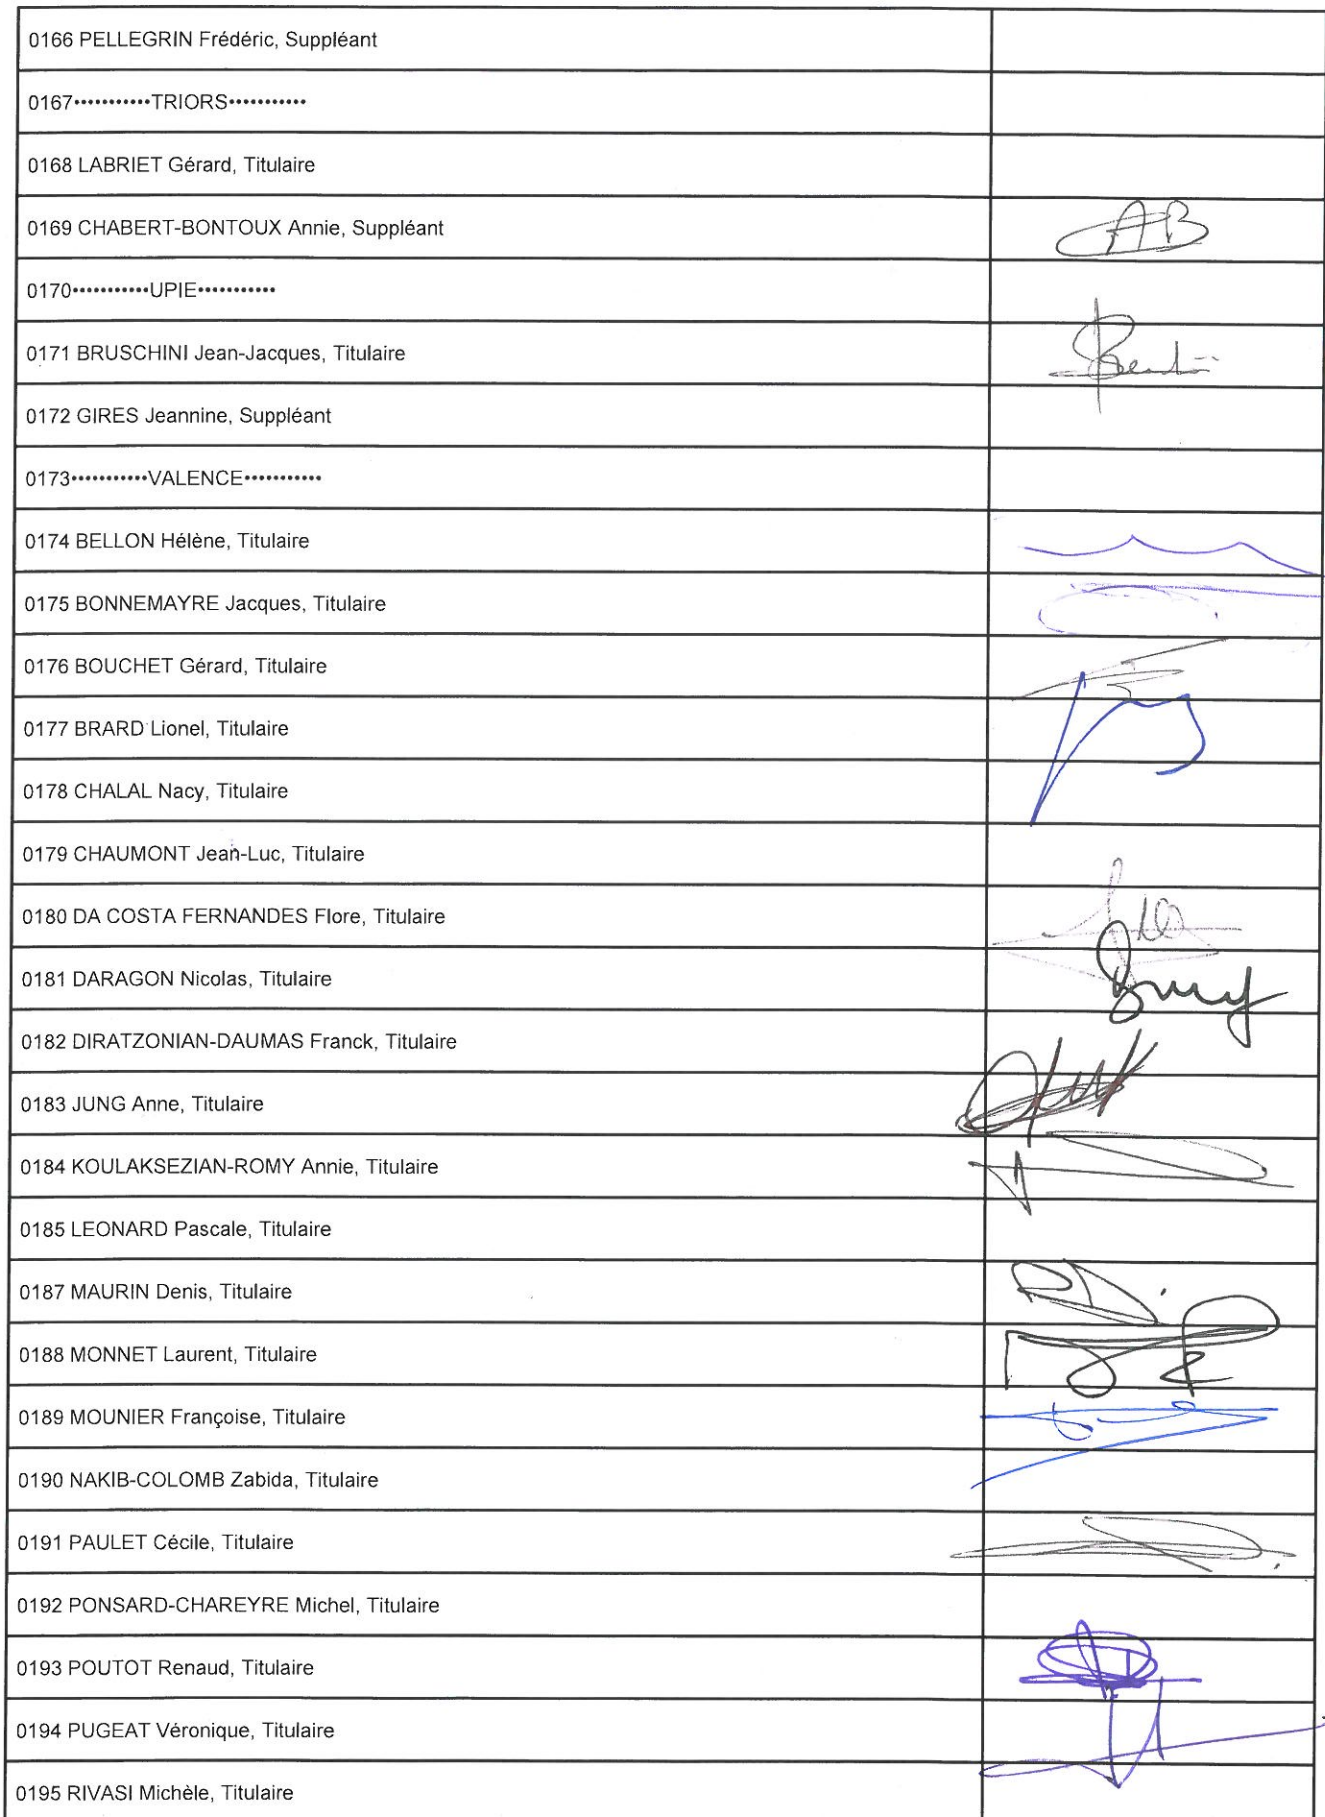 0166 PELLEGRIN Frédéric, Suppléant
0167···········TRIORS···········
0168 LABRIET Gérard, Titulaire
0169 CHABERT-BONTOUX Annie, Suppléant
AB
0170···········UPIE···········
0171 BRUSCHINI Jean-Jacques, Titulaire
0172 GIRES Jeannine, Suppléant
0173···········VALENCE···········
0174 BELLON Hélène, Titulaire
0175 BONNEMAYRE Jacques, Titulaire
0176 BOUCHET Gérard, Titulaire
0177 BRARD Lionel, Titulaire
0178 CHALAL Nacy, Titulaire
0179 CHAUMONT Jean-Luc, Titulaire
0180 DA COSTA FERNANDES Flore, Titulaire
0181 DARAGON Nicolas, Titulaire
0182 DIRATZONIAN-DAUMAS Franck, Titulaire
0183 JUNG Anne, Titulaire
0184 KOULAKSEZIAN-ROMY Annie, Titulaire
0185 LEONARD Pascale, Titulaire
0187 MAURIN Denis, Titulaire
0188 MONNET Laurent, Titulaire
0189 MOUNIER Françoise, Titulaire
0190 NAKIB-COLOMB Zabida, Titulaire
0191 PAULET Cécile, Titulaire
0192 PONSARD-CHAREYRE Michel, Titulaire
0193 POUTOT Renaud, Titulaire
0194 PUGEAT Véronique, Titulaire
0195 RIVASI Michèle, Titulaire